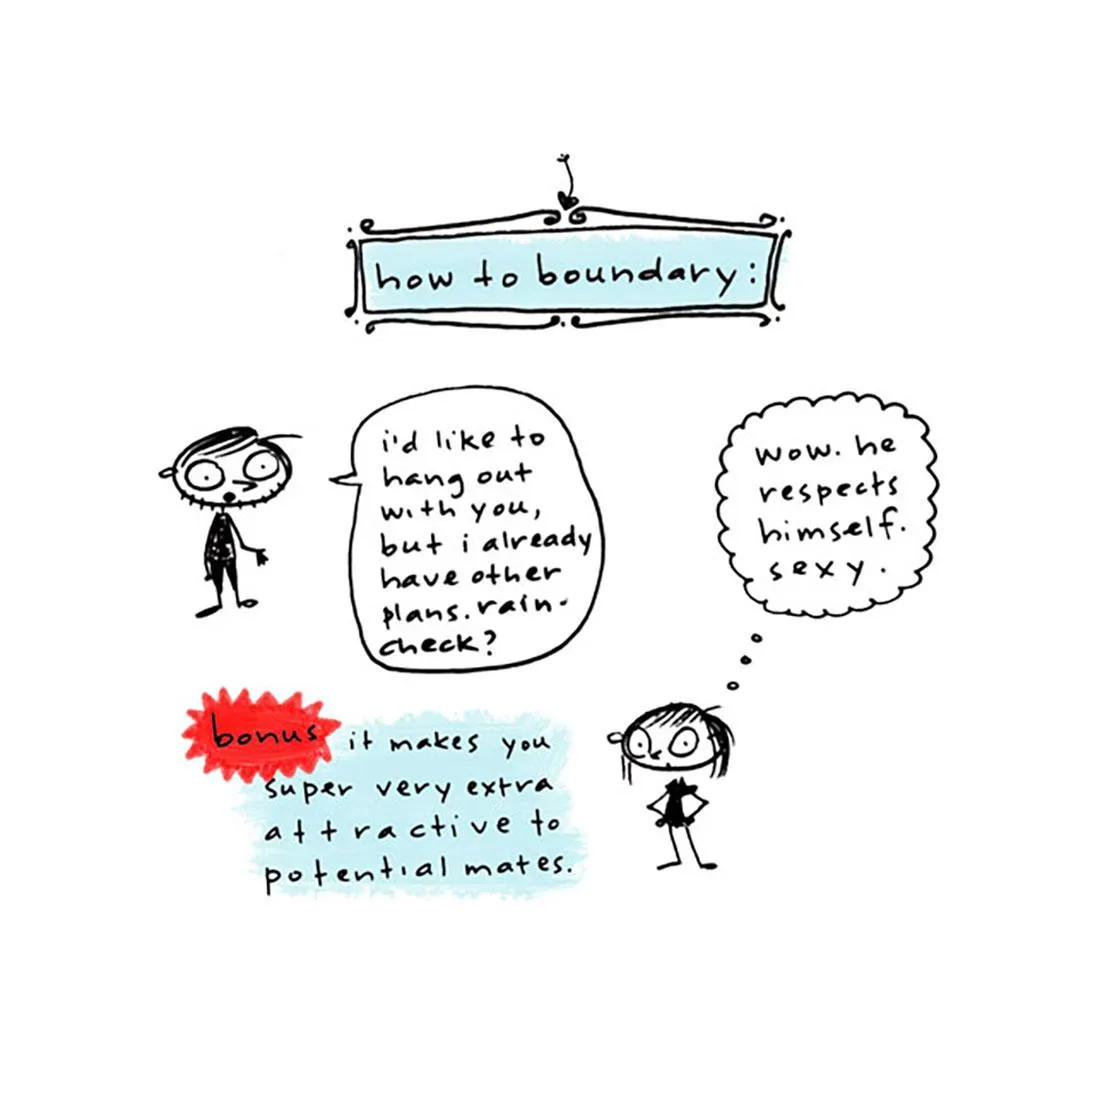 how to boundary:
i'd like to
hang out
with you,
but i already
have other
plans. rain-
check?
wow. he
respects
himself.
sexy.
bonus it makes you
super very extra
attractive to
potential mates.